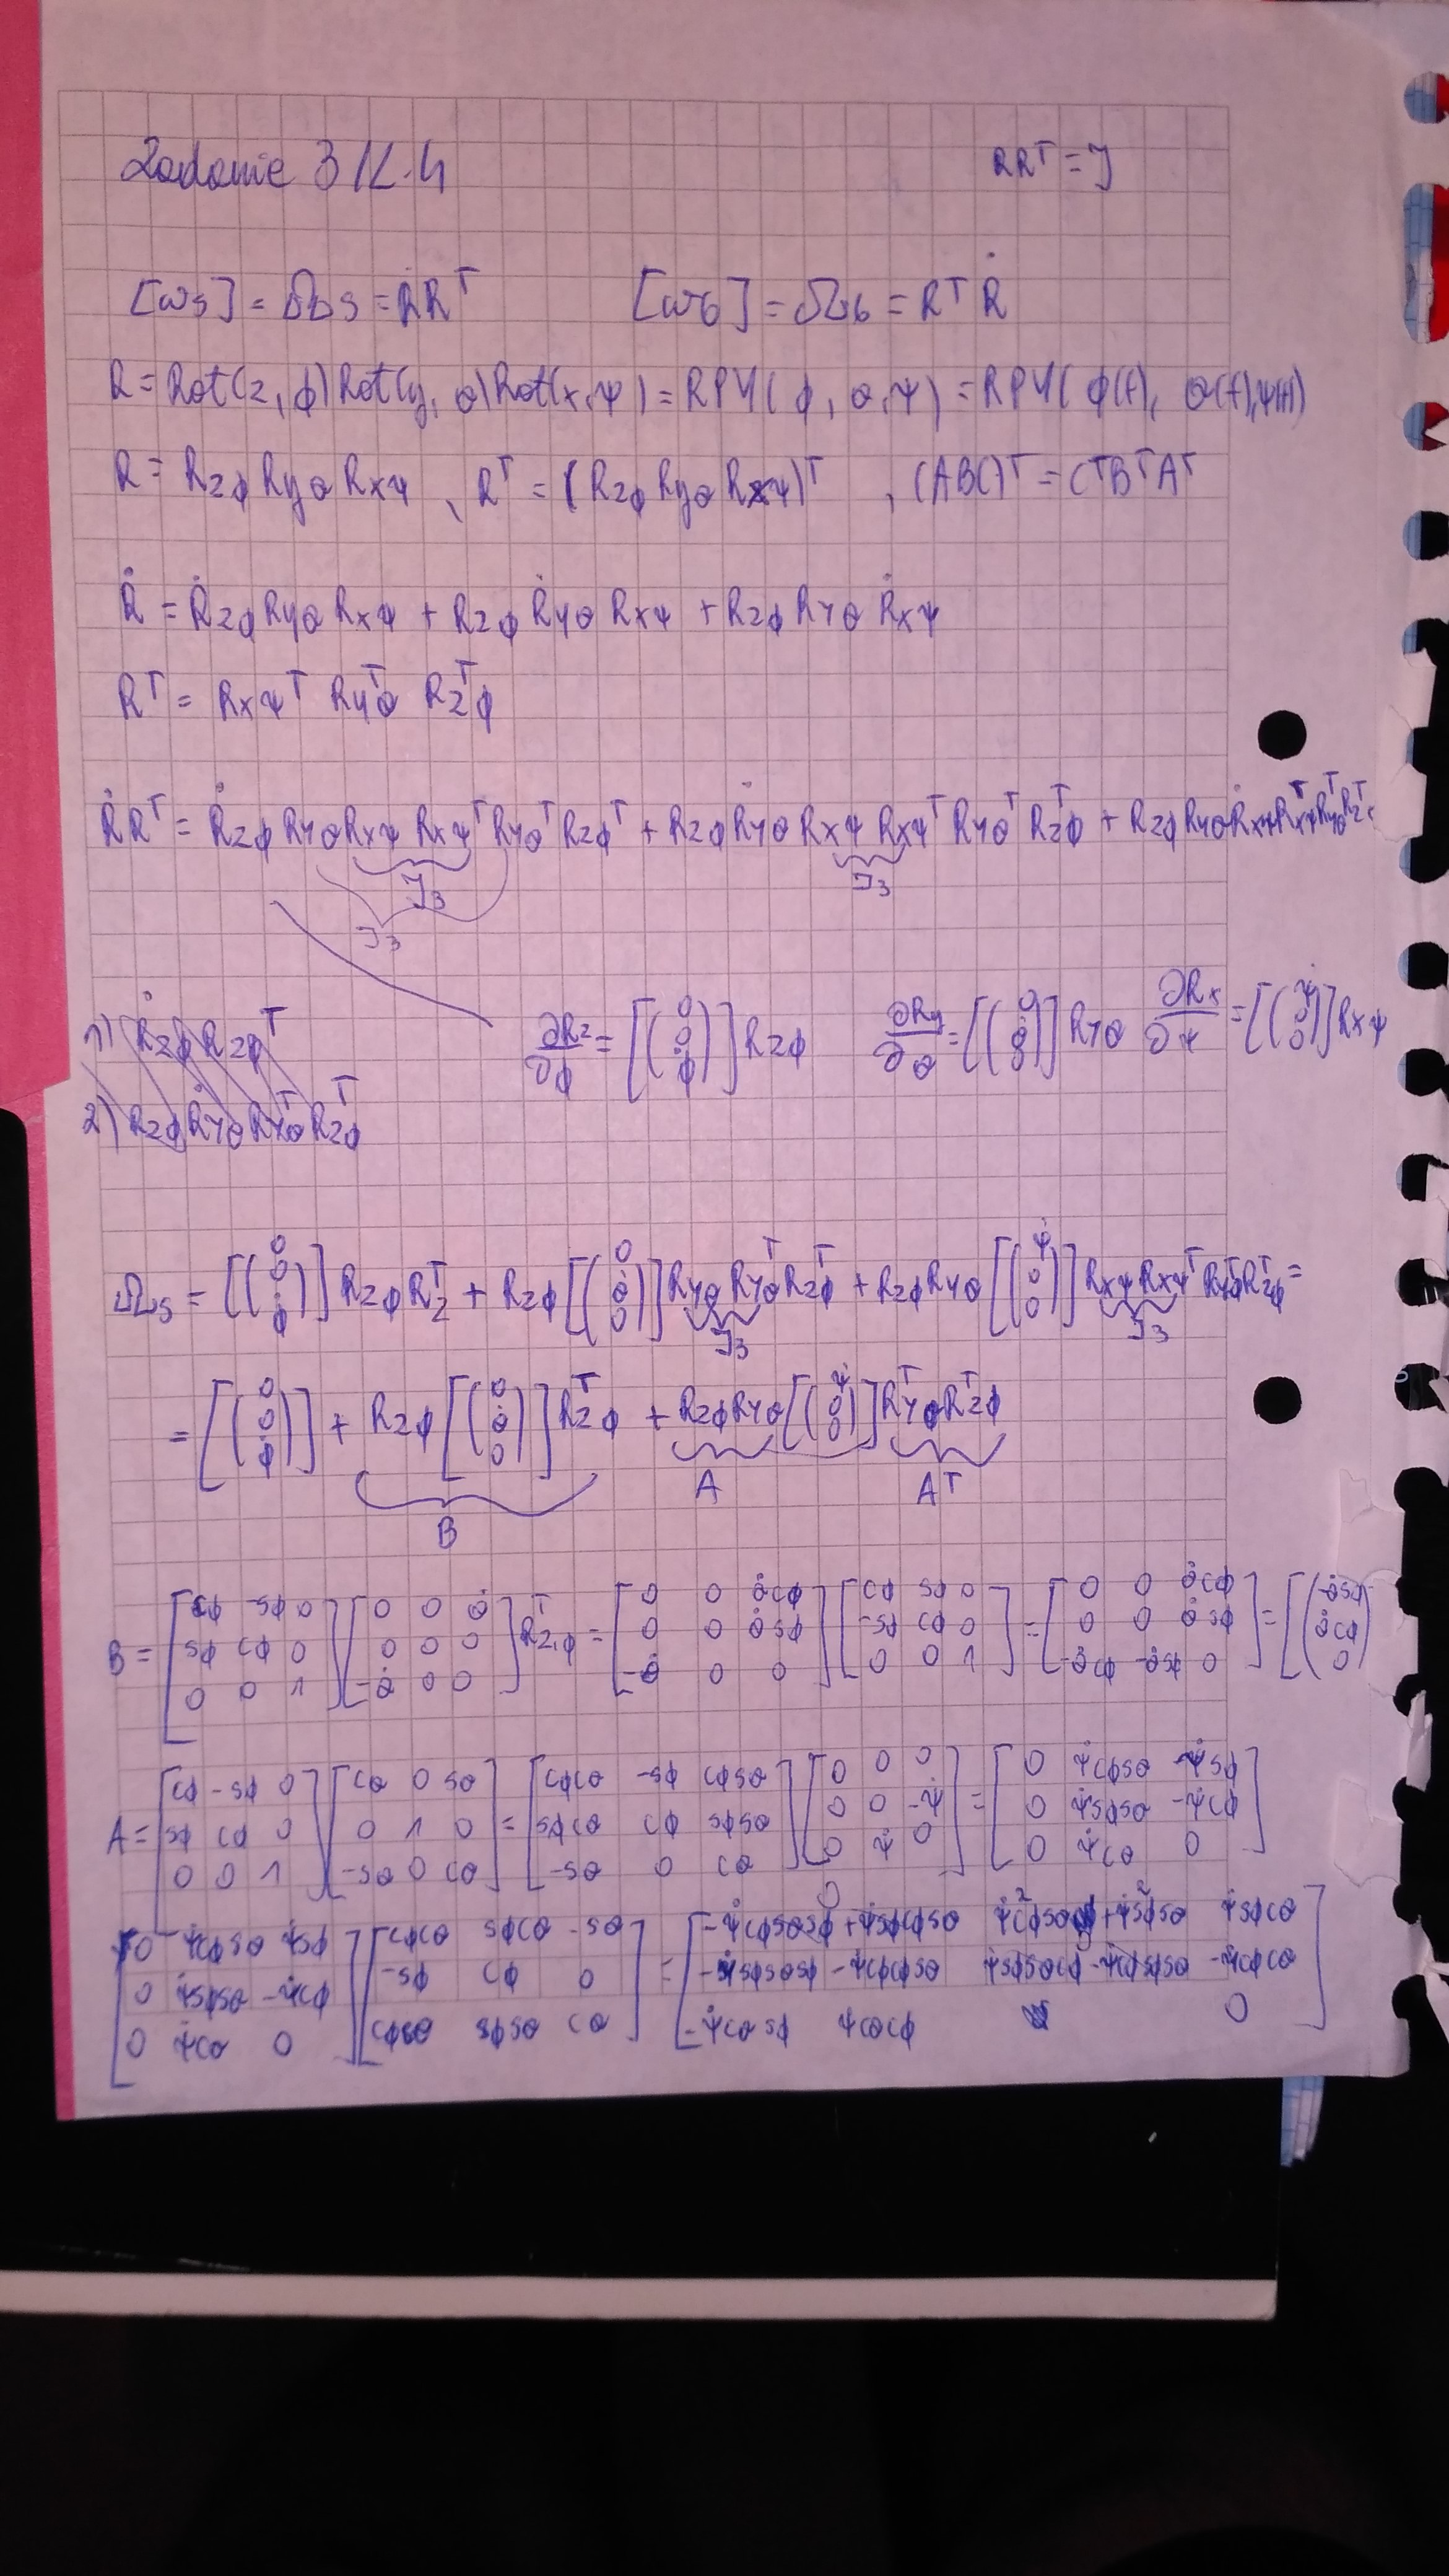 Zadanie 3 /L.4 RRᵀ = I
[ωs] = Ωs = ṘRᵀ [ωb] = Ωb = RᵀṘ
R = Rot(z, φ) Rot(y, θ) Rot(x, ψ) = RPY(φ, θ, ψ) = RPY(φ(t), θ(t), ψ(t))
R = Rzφ Ryθ Rxψ , Rᵀ = (Rzφ Ryθ Rxψ)ᵀ , (ABC)ᵀ = CᵀBᵀAᵀ
Ṙ = Ṙzφ Ryθ Rxψ + Rzφ Ṙyθ Rxψ + Rzφ Ryθ Ṙxψ
Rᵀ = Rxψᵀ Ryᵀθ Rzᵀφ
ṘRᵀ = Ṙzφ Ryθ Rxψ Rxψᵀ Ryθᵀ Rzφᵀ + Rzφ Ṙyθ Rxψ Rxψᵀ Ryθᵀ Rzᵀφ + Rzφ Ryθ Ṙxψ Rxᵀψ Ryᵀθ Rzᵀ
I3 I3
I3
1) Ṙzφ Rzφᵀ
2) Rzφ Ṙyθ Ryᵀθ Rzᵀφ
∂Rz/∂φ = [(0 0 φ̇)] Rzφ ∂Ry/∂θ = [(0 θ̇ 0)] Ryθ ∂Rx/∂ψ = [(ψ̇ 0 0)] Rxψ
Ωs = [(0 0 φ̇)] Rzφ Rzᵀ + Rzφ [(0 θ̇ 0)] Ryθ Ryᵀθ Rzᵀφ + Rzφ Ryθ [(ψ̇ 0 0)] Rxψ Rxψᵀ Ryᵀθ Rzᵀφ =
I3 I3
= [(0 0 φ̇)] + Rzφ [(0 θ̇ 0)] Rzᵀφ + Rzφ Ryθ [(ψ̇ 0 0)] Ryᵀθ Rzᵀφ
B A Aᵀ
B = [cφ -sφ 0; sφ cφ 0; 0 0 1] [0 0 θ̇; 0 0 0; -θ̇ 0 0] Rᵀz,φ = [0 0 θ̇cφ; 0 0 θ̇sφ; -θ̇ 0 0] [cφ sφ 0; -sφ cφ 0; 0 0 1] = [0 0 θ̇cφ; 0 0 θ̇sφ; -θ̇cφ -θ̇sφ 0] = [(-θ̇sφ θ̇cφ 0)]
A = [cφ -sφ 0; sφ cφ 0; 0 0 1] [cθ 0 sθ; 0 1 0; -sθ 0 cθ] = [cφcθ -sφ cφsθ; sφcθ cφ sφsθ; -sθ 0 cθ] [0 0 0; 0 0 -ψ̇; 0 ψ̇ 0] = [0 ψ̇cφsθ ψ̇sφ; 0 ψ̇sφsθ -ψ̇cφ; 0 ψ̇cθ 0]
[0 ψ̇cφsθ ψ̇sφ; 0 ψ̇sφsθ -ψ̇cφ; 0 ψ̇cθ 0] [cφcθ sφcθ -sθ; -sφ cφ 0; cφsθ sφsθ cθ] = [-ψ̇cφsθsφ + ψ̇sφcφsθ ψ̇c²φsθ + ψ̇s²φsθ ψ̇sφcθ; -ψ̇sφsθsφ - ψ̇cφcφsθ ψ̇sφsθcφ - ψ̇cφsφsθ -ψ̇cφcθ; -ψ̇cθsφ ψ̇cθcφ 0]